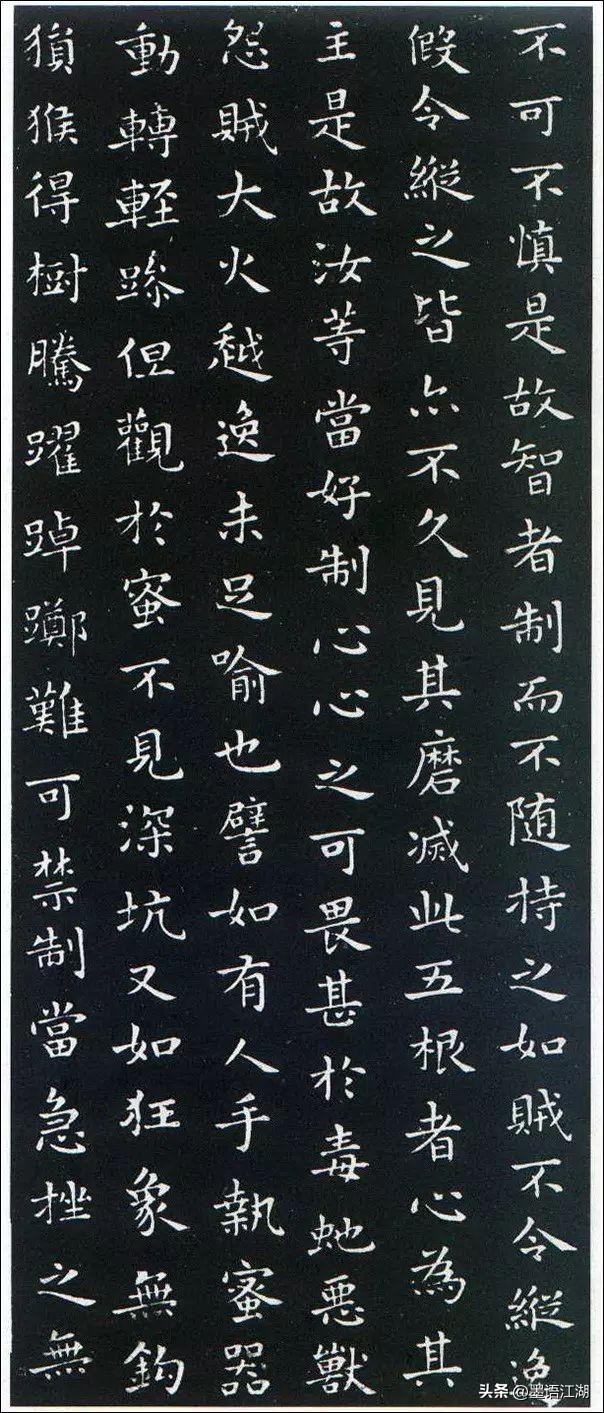 不可不慎是故智者制而不随持之如賊不令縱逸
假令縱之皆亦不久見其磨滅此五根者心為其
主是故汝等當好制心心之可畏甚於毒虵悪獸
怨賊大火越逸未足喻也譬如有人手執蜜器
動轉輕躁但觀於蜜不見深坑又如狂象無鉤
猨猴得樹騰躍踔躑難可禁制當急挫之無
头条 @墨语江湖